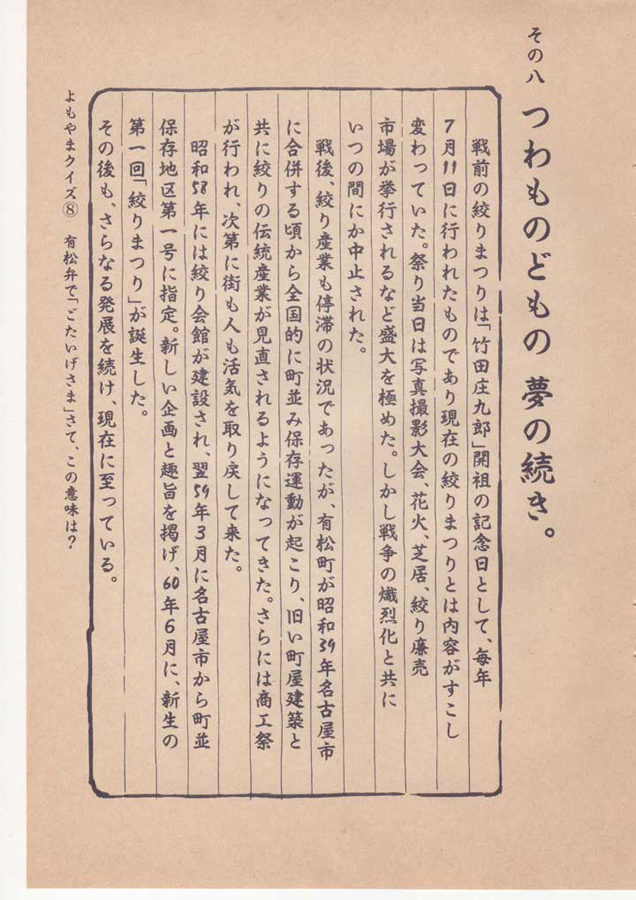 その八 つわものどもの 夢の続き。
戦前の絞りまつりは「竹田庄九郎」開祖の記念日として、毎年
7月11日に行われたものであり現在の絞りまつりとは内容がすこし
変わっていた。祭り当日は写真撮影大会、花火、芝居、絞り廉売
市場が挙行されるなど盛大を極めた。しかし戦争の熾烈化と共に
いつの間にか中止された。
戦後、絞り産業も停滞の状況であったが、有松町が昭和39年名古屋市
に合併する頃から全国的に町並み保存運動が起こり、旧い町屋建築と
共に絞りの伝統産業が見直されるようになってきた。さらには商工祭
が行われ、次第に街も人も活気を取り戻して来た。
昭和58年には絞り会館が建設され、翌59年3月に名古屋市から町並
保存地区第一号に指定。新しい企画と趣旨を掲げ、60年6月に、新生の
第一回「絞りまつり」が誕生した。
その後も、さらなる発展を続け、現在に至っている。
よもやまクイズ⑧ 有松弁で「ごたいげさま」さて、この意味は?